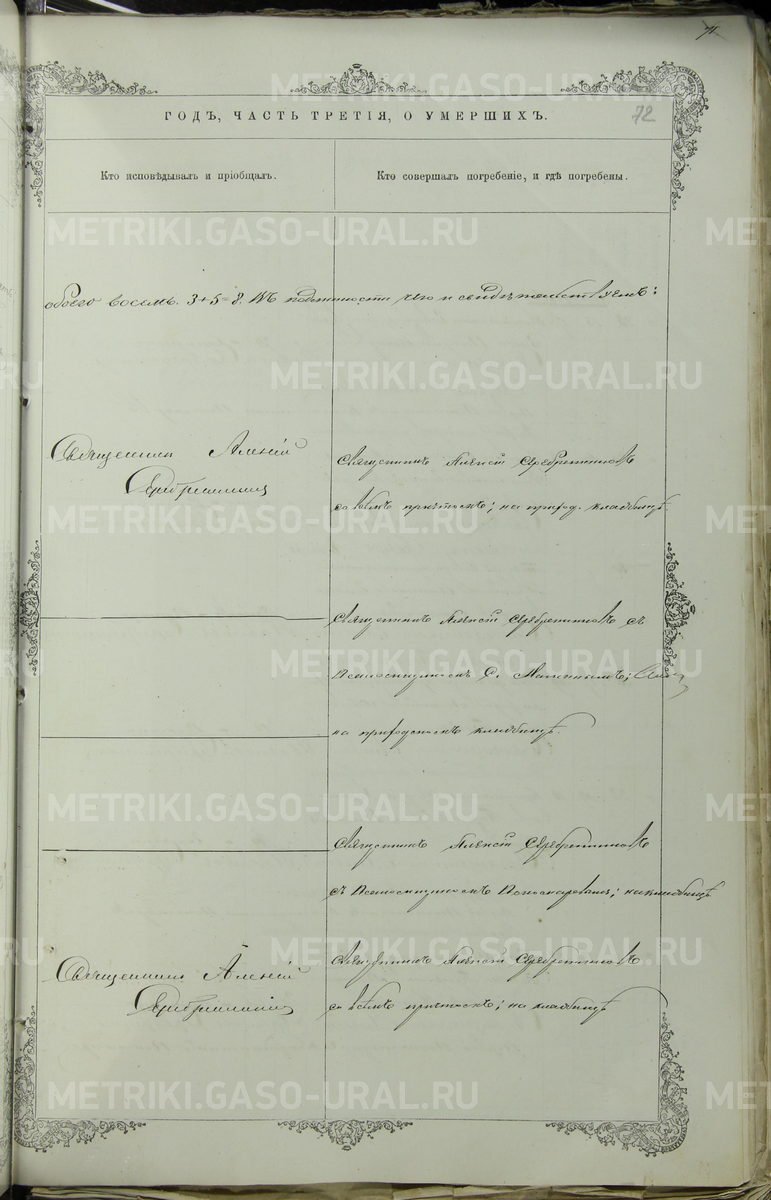 71
72
ГОДЪ, ЧАСТЬ ТРЕТІЯ, О УМЕРШИХЪ.
Кто исповѣдывалъ и пріобщалъ.
Кто совершалъ погребеніе, и гдѣ погребены.
обоего восемь. 3+5=8. Въ подлинности чего и свидѣтельствуемъ:
Священникъ Алексій
Священникъ Алексій Серебренниковъ
Серебренниковъ
со всѣмъ причтомъ; на приход. кладбищѣ.
Священникъ Алексій Серебренниковъ съ
Псаломщикомъ С.
на приходскомъ кладбищѣ.
Священникъ Алексій Серебренниковъ
съ Псаломщикомъ Пономаревымъ; на кладбищѣ
Священникъ Алексій Серебренниковъ
Священникъ Алексій
Серебренниковъ
со всѣмъ причтомъ; на кладбищѣ
METRIKI.GASO-URAL.RU